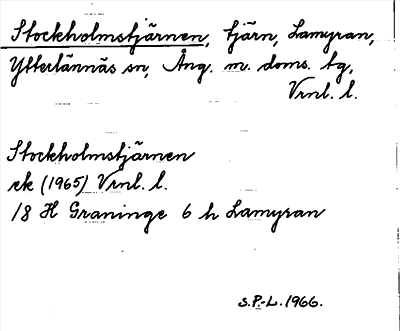 Stockholmstjärnen, tjärn, Lamyran,
Ytterlännäs sn, Ång. m. doms. tg,
Vrnl. l.
Stockholmstjärnen
ek (1965) Vrnl. l.
18 H Graninge 6 h Lamyran
S.P.-L. 1966.